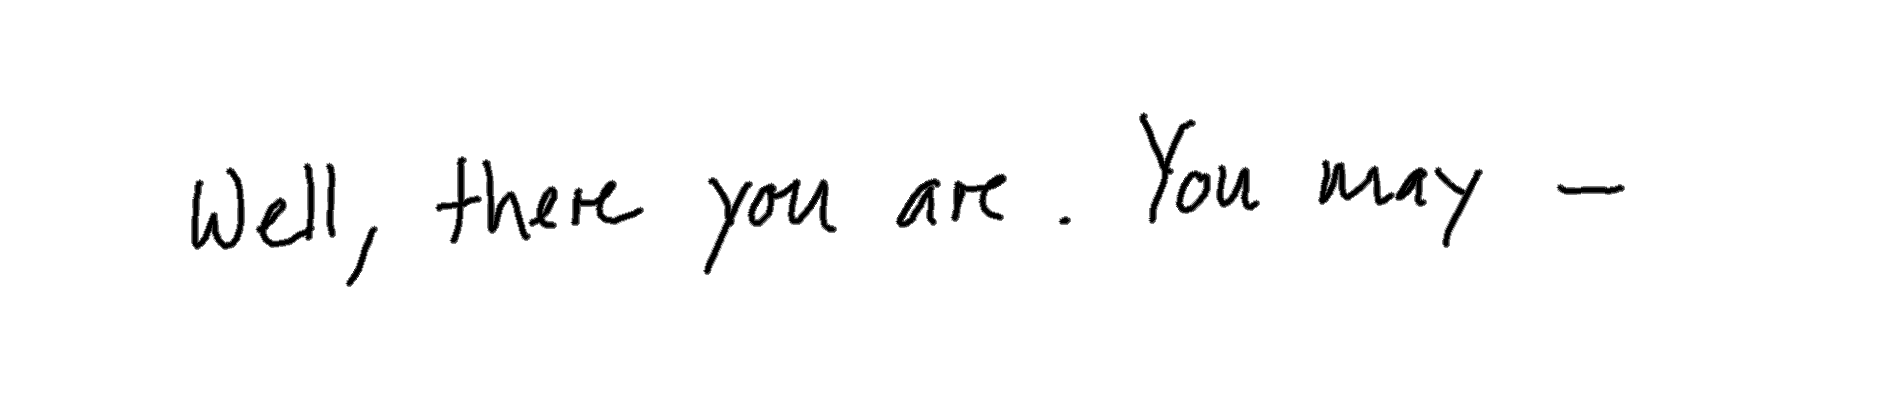 Well, there you are. You may –